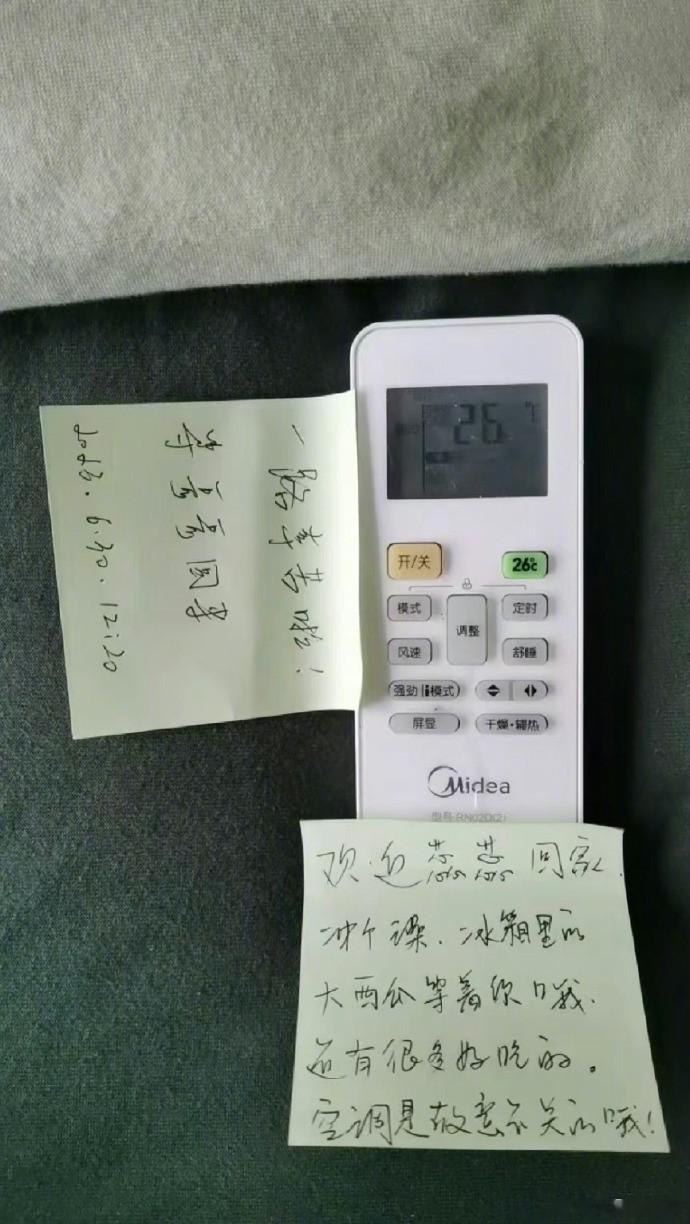 一路辛苦啦！
2023.6.30.12:20
26 ℃
开/关
26℃
模式
调整
定时
风速
舒睡
强劲 | i模式
屏显
干燥·辅热
Midea
型号:RN02D(2)
欢迎蕊蕊回家.
冲个澡.冰箱里的
大西瓜等着你哦.
还有很多好吃的。
空调是故意不关的哦！